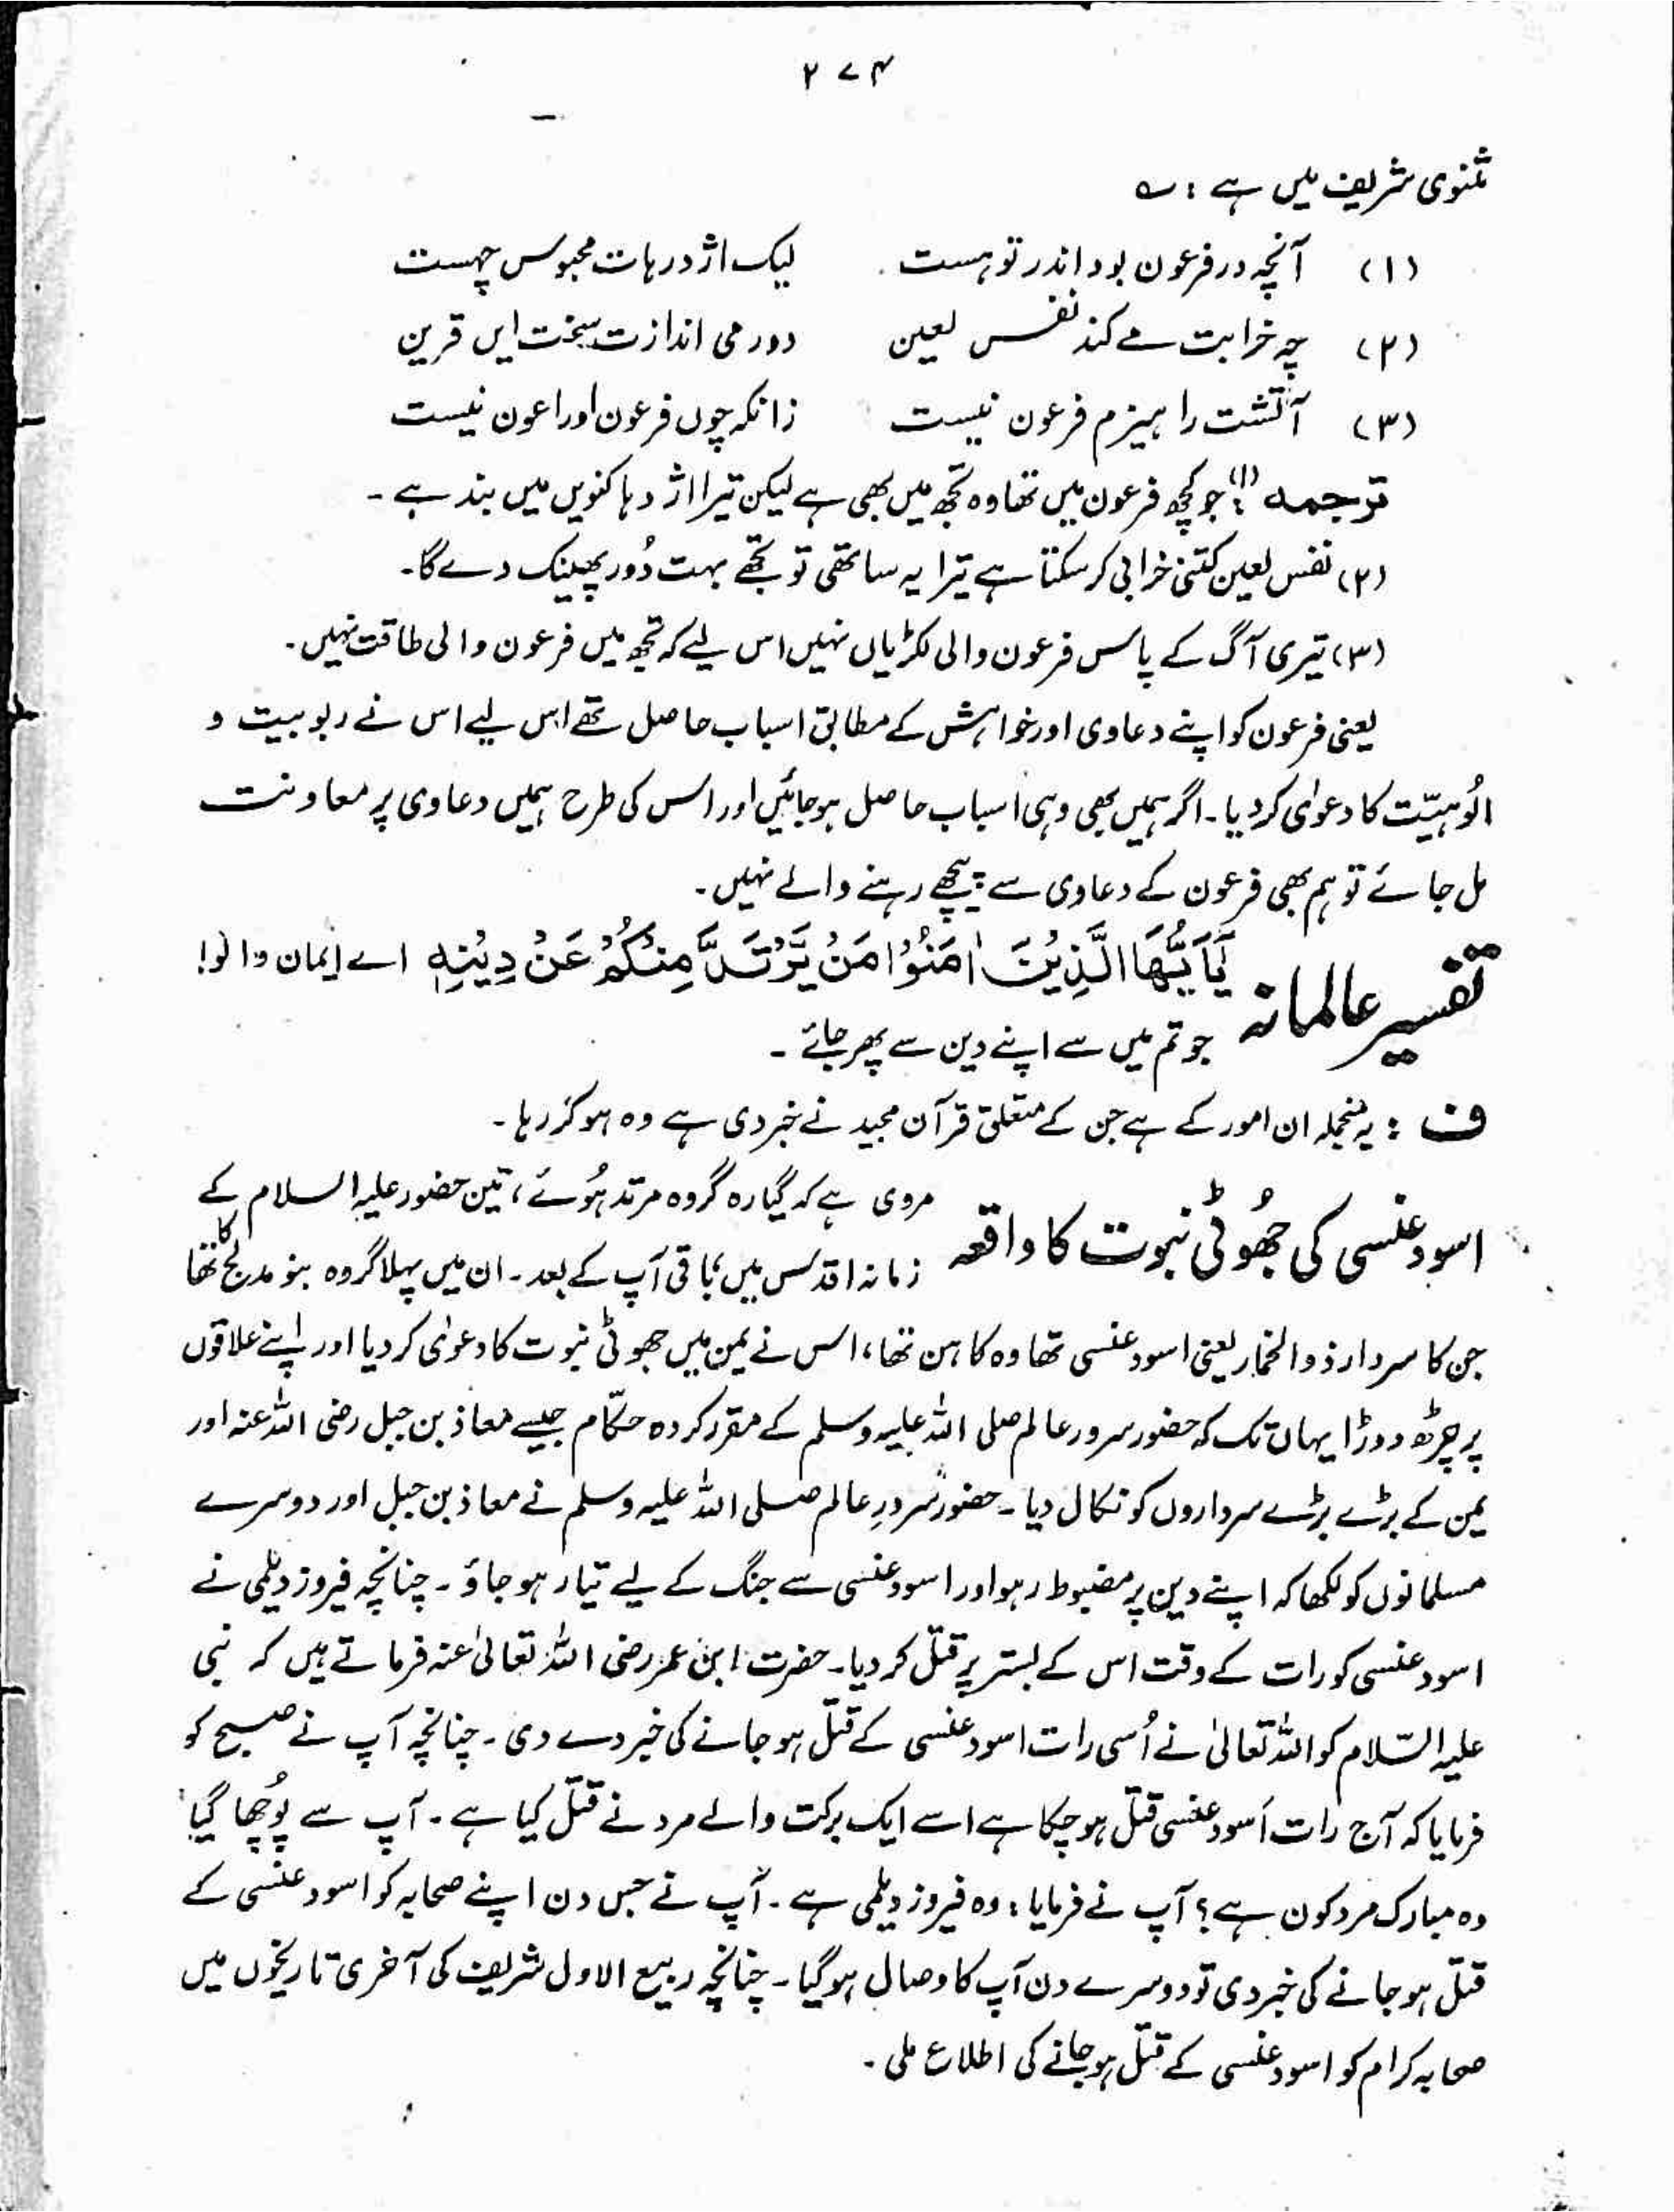 ۲۷۴
ثنوی شریف میں ہے : ؎
(۱) آنچہ در فرعون بود اندر تو ہست لیک اژدرہات محبوس چہست
(۲) چہ خرابت مے کند نفس لعین دور می اندازت سخت ایں قرین
(۳) آتشت را ہیزم فرعون نیست زانکہ چوں فرعون اورا عون نیست
ترجمہ (۱)؛ جو کچھ فرعون میں تھا وہ تجھ میں بھی ہے لیکن تیرا اژدہا کنویں میں بند ہے ۔
(۲) نفس لعین کتنی خرابی کر سکتا ہے تیرا یہ ساتھی تو تجھے بہت دُور پھینک دے گا۔
(۳) تیری آگ کے پاس فرعون والی لکڑیاں نہیں اس لیے کہ تجھ میں فرعون والی طاقت نہیں۔
یعنی فرعون کو اپنے دعاوی اور خواہش کے مطابق اسباب حاصل تھے اس لیے اس نے ربوبیت و
الُوہیّت کا دعوٰی کر دیا۔ اگر ہمیں بھی وہی اسباب حاصل ہو جائیں اور اس کی طرح ہمیں دعاوی پر معاونت
مل جائے تو ہم بھی فرعون کے دعاوی سے پیچھے رہنے والے نہیں۔
تفسیر عالمانہ یٰۤاَیُّہَا الَّذِیْنَ اٰمَنُوْا مَنْ یَّرْتَدَّ مِنْکُمْ عَنْ دِیْنِہٖ اے ایمان والو!
جو تم میں سے اپنے دین سے پھر جائے ۔
ف : یہ منجملہ ان امور کے ہے جن کے متعلق قرآن مجید نے خبر دی ہے وہ ہو کر رہا ۔
اسود عنسی کی جھُوٹی نبوت کا واقعہ مروی ہے کہ گیارہ گروہ مرتد ہُوئے، تین حضور علیہ السلام کے
زمانہ اقدس میں، باقی آپ کے بعد۔ ان میں پہلا گروہ بنو مدلج کا تھا
جن کا سردار ذوالخمار یعنی اسود عنسی تھا وہ کاہن تھا، اس نے یمن میں جھوٹی نبوت کا دعوٰی کر دیا اور اپنے علاقوں
پر چڑھ دوڑا یہاں تک کہ حضور سرور عالم صلی اللہ علیہ وسلم کے مقرر کردہ حکّام جیسے معاذ بن جبل رضی اللہ عنہ اور
یمن کے بڑے بڑے سرداروں کو نکال دیا۔ حضور سرورِ عالم صلی اللہ علیہ وسلم نے معاذ بن جبل اور دوسرے
مسلمانوں کو لکھا کہ اپنے دین پر مضبوط رہو اور اسود عنسی سے جنگ کے لیے تیار ہو جاؤ۔ چنانچہ فیروز دیلمی نے
اسود عنسی کو رات کے وقت اس کے بستر پر قتل کر دیا۔ حضرت ابن عمر رضی اللہ تعالیٰ عنہ فرماتے ہیں کہ نبی
علیہ السّلام کو اللہ تعالیٰ نے اُسی رات اسود عنسی کے قتل ہو جانے کی خبر دے دی۔ چنانچہ آپ نے صبح کو
فرمایا کہ آج رات اَسود عنسی قتل ہو چکا ہے اسے ایک برکت والے مرد نے قتل کیا ہے۔ آپ سے پُوچھا گیا
وہ مبارک مرد کون ہے؟ آپ نے فرمایا : وہ فیروز دیلمی ہے۔ آپ نے جس دن اپنے صحابہ کو اسود عنسی کے
قتل ہو جانے کی خبر دی تو دوسرے دن آپ کا وصال ہو گیا۔ چنانچہ ربیع الاول شریف کی آخری تاریخوں میں
صحابہ کرام کو اسود عنسی کے قتل ہو جانے کی اطلاع ملی۔